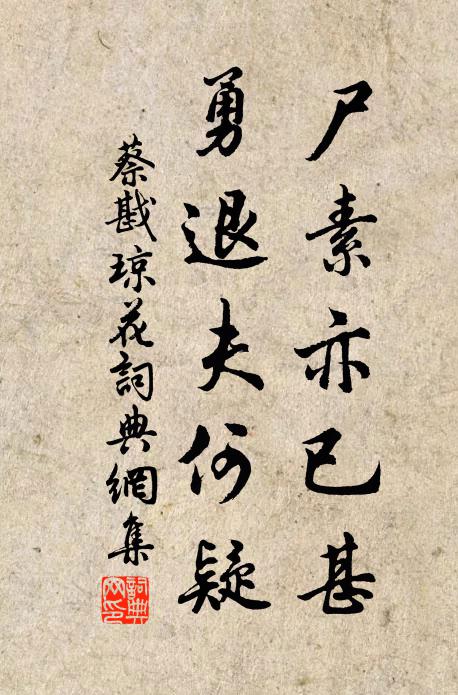 尸素亦已甚
勇退夫何疑
蔡戡琼花詞典網集
詞典网印